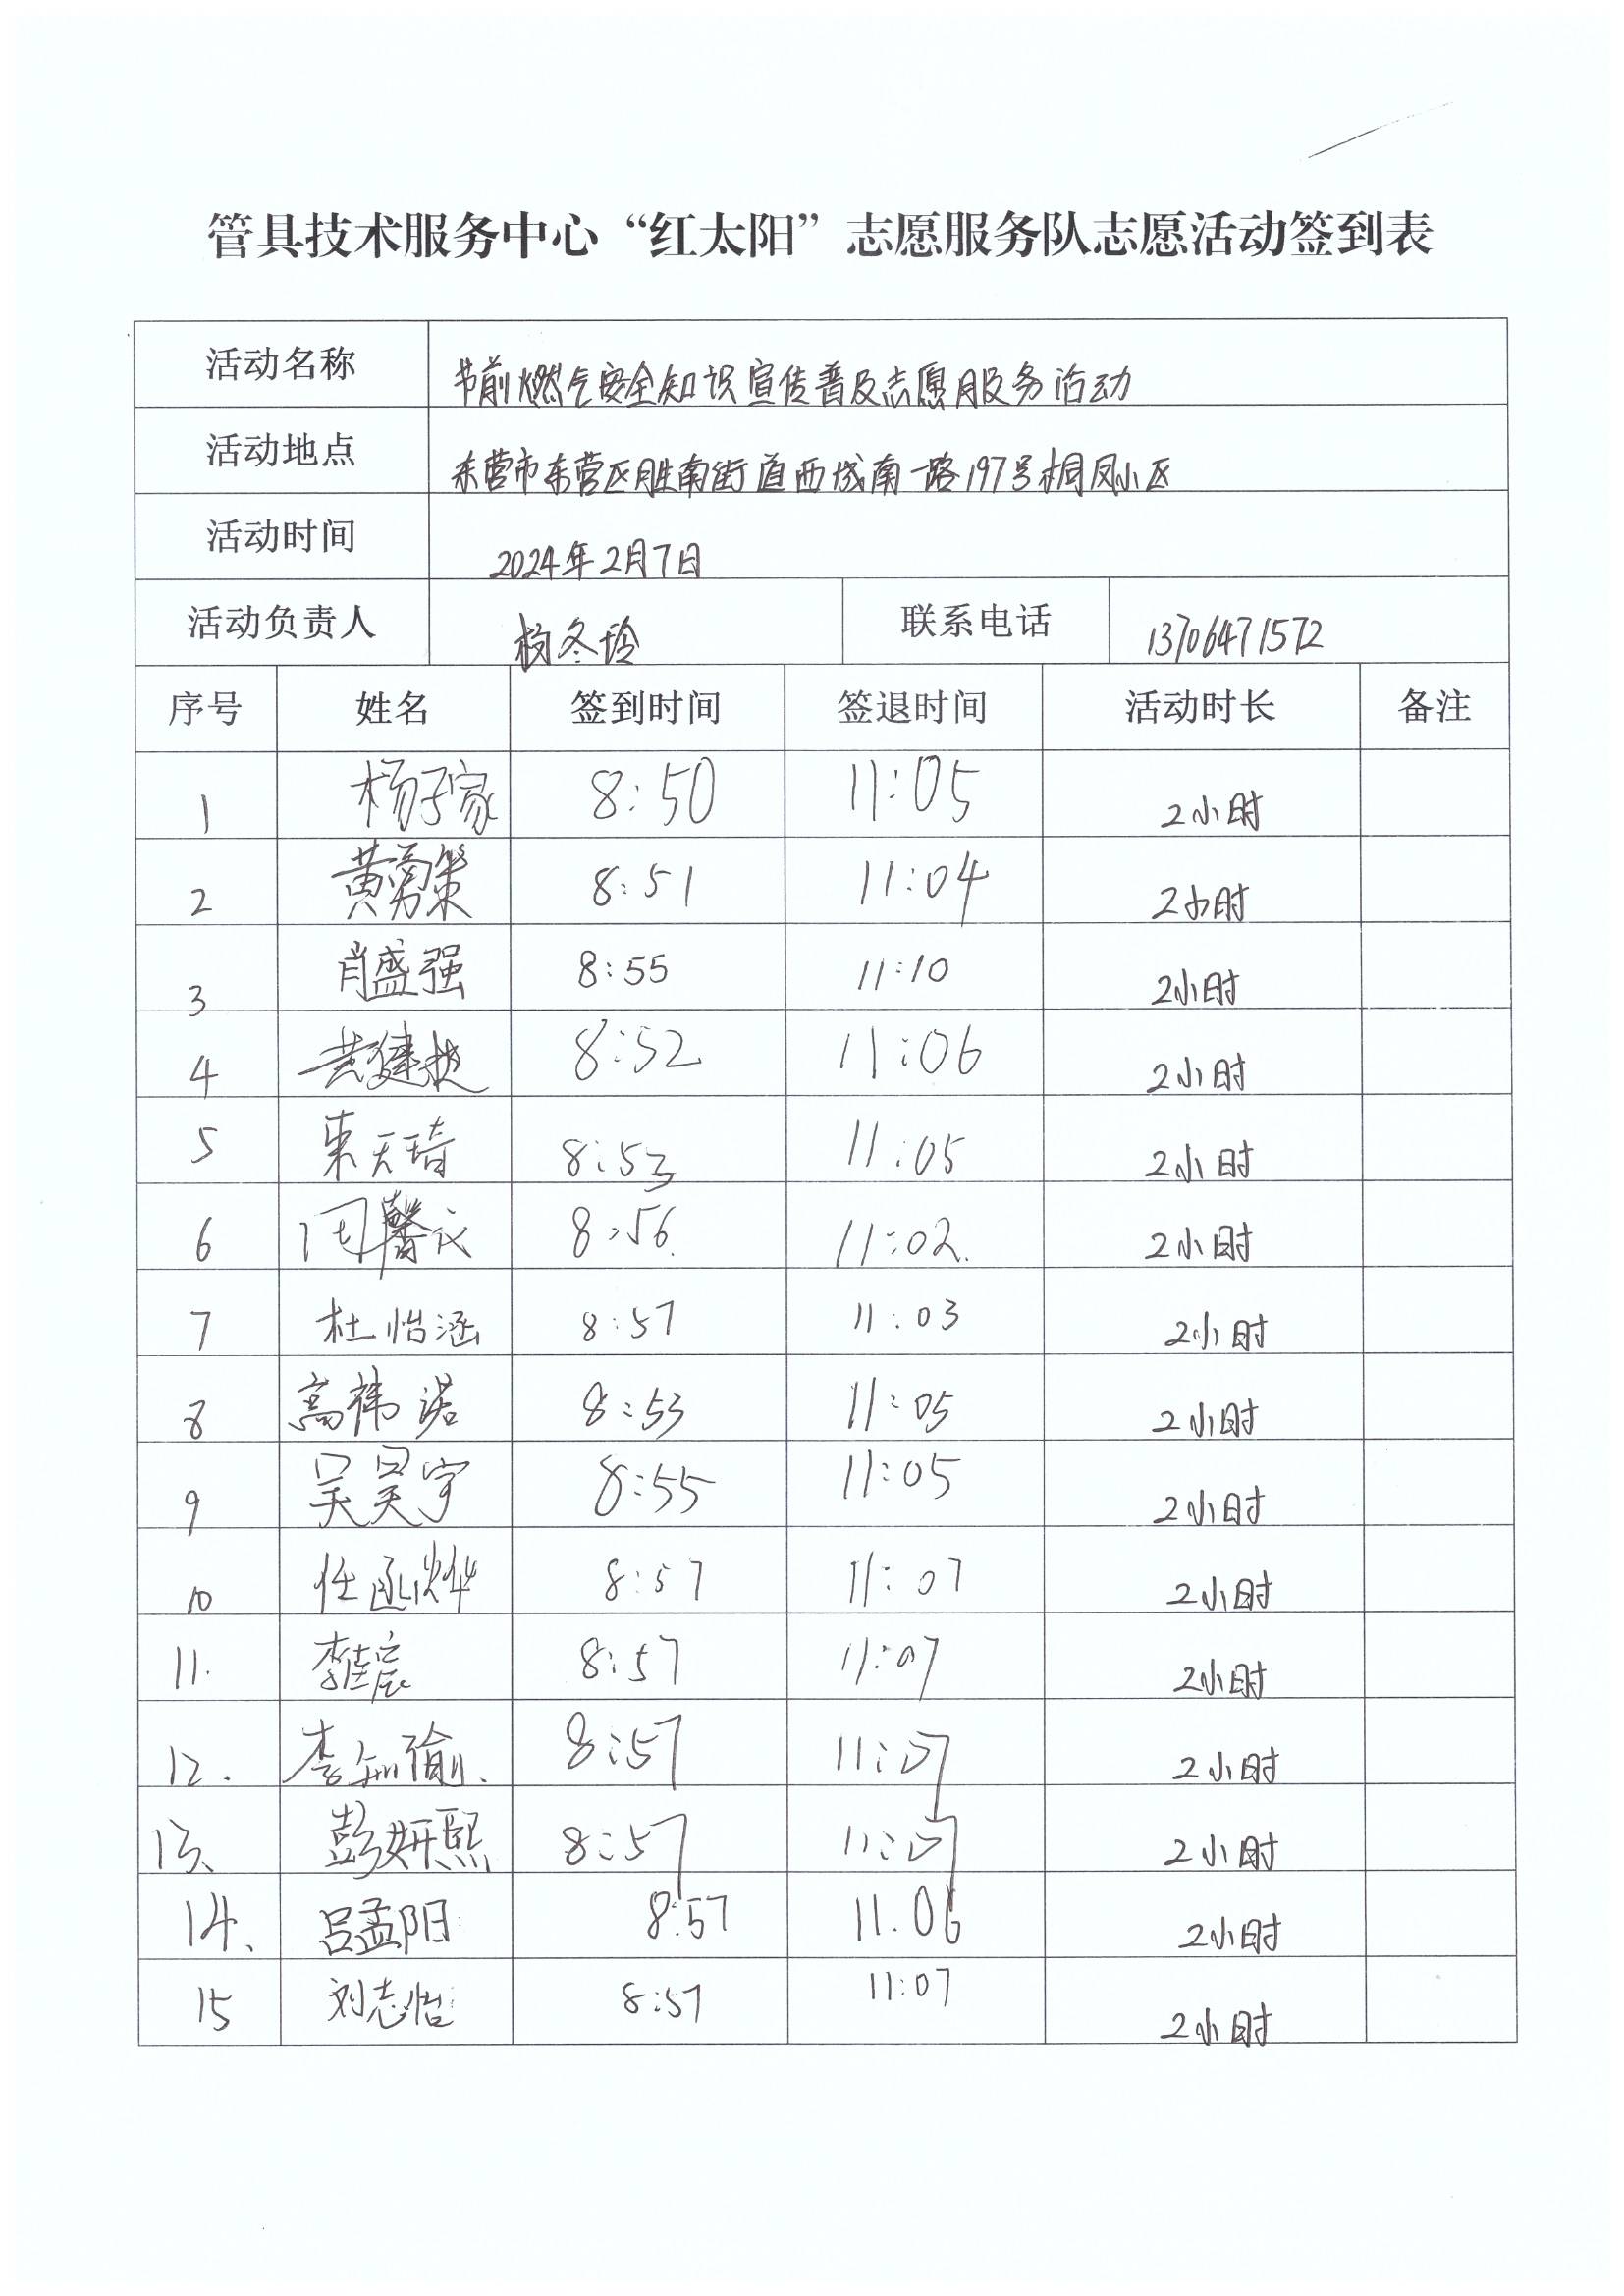 管具技术服务中心“红太阳”志愿服务队志愿活动签到表
活动名称 节前燃气安全知识宣传普及志愿服务活动
活动地点 东营市东营区胜南街道西城南一路197号桐凤小区
活动时间 2024年2月7日
活动负责人 杨冬玲 联系电话 13706471572
序号 姓名 签到时间 签退时间 活动时长 备注
1 杨子家 8:50 11:05 2小时
2 黄勇策 8:51 11:04 2小时
3 肖盛强 8:55 11:10 2小时
4 黄建 8:52 11:06 2小时
5 天琦 8:53 11:05 2小时
6 馨议 8:56. 11:02. 2小时
7 杜怡涵 8:57 11:03 2小时
8 高祎诺 8:53 11:05 2小时
9 吴昊宇 8:55 11:05 2小时
10 任函烨 8:57 11:07 2小时
11. 李宸 8:57 11:07 2小时
12. 李知瑜. 8:57 11:07 2小时
13、 彭妍熙 8:57 11:07 2小时
14、 吕孟阳 8:57 11:06 2小时
15 刘志怡 8:57 11:07 2小时